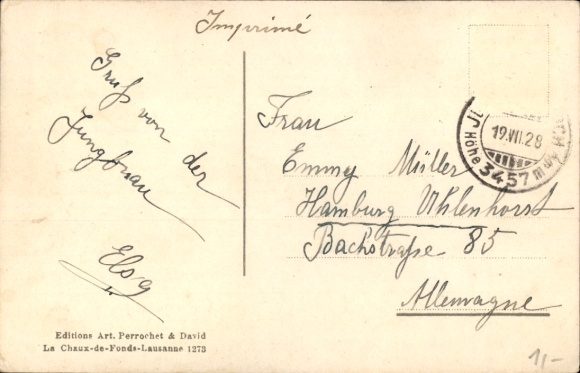 Imprimé
Gruß von der
Jungfrau
Frau
Emmy Müller
Hamburg Uhlenhorst
Bachstraße 85
Allemagne
19.VII.28
Höhe 3457 m
Editions Art. Perrochet & David
La Chaux-de-Fonds-Lausanne 1273
1,-